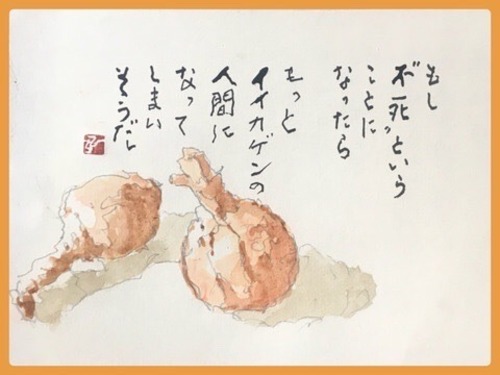 もし
不死っという
ことに
なったら
もっと
イイカゲンの
人間に
なって
しまい
そうだし